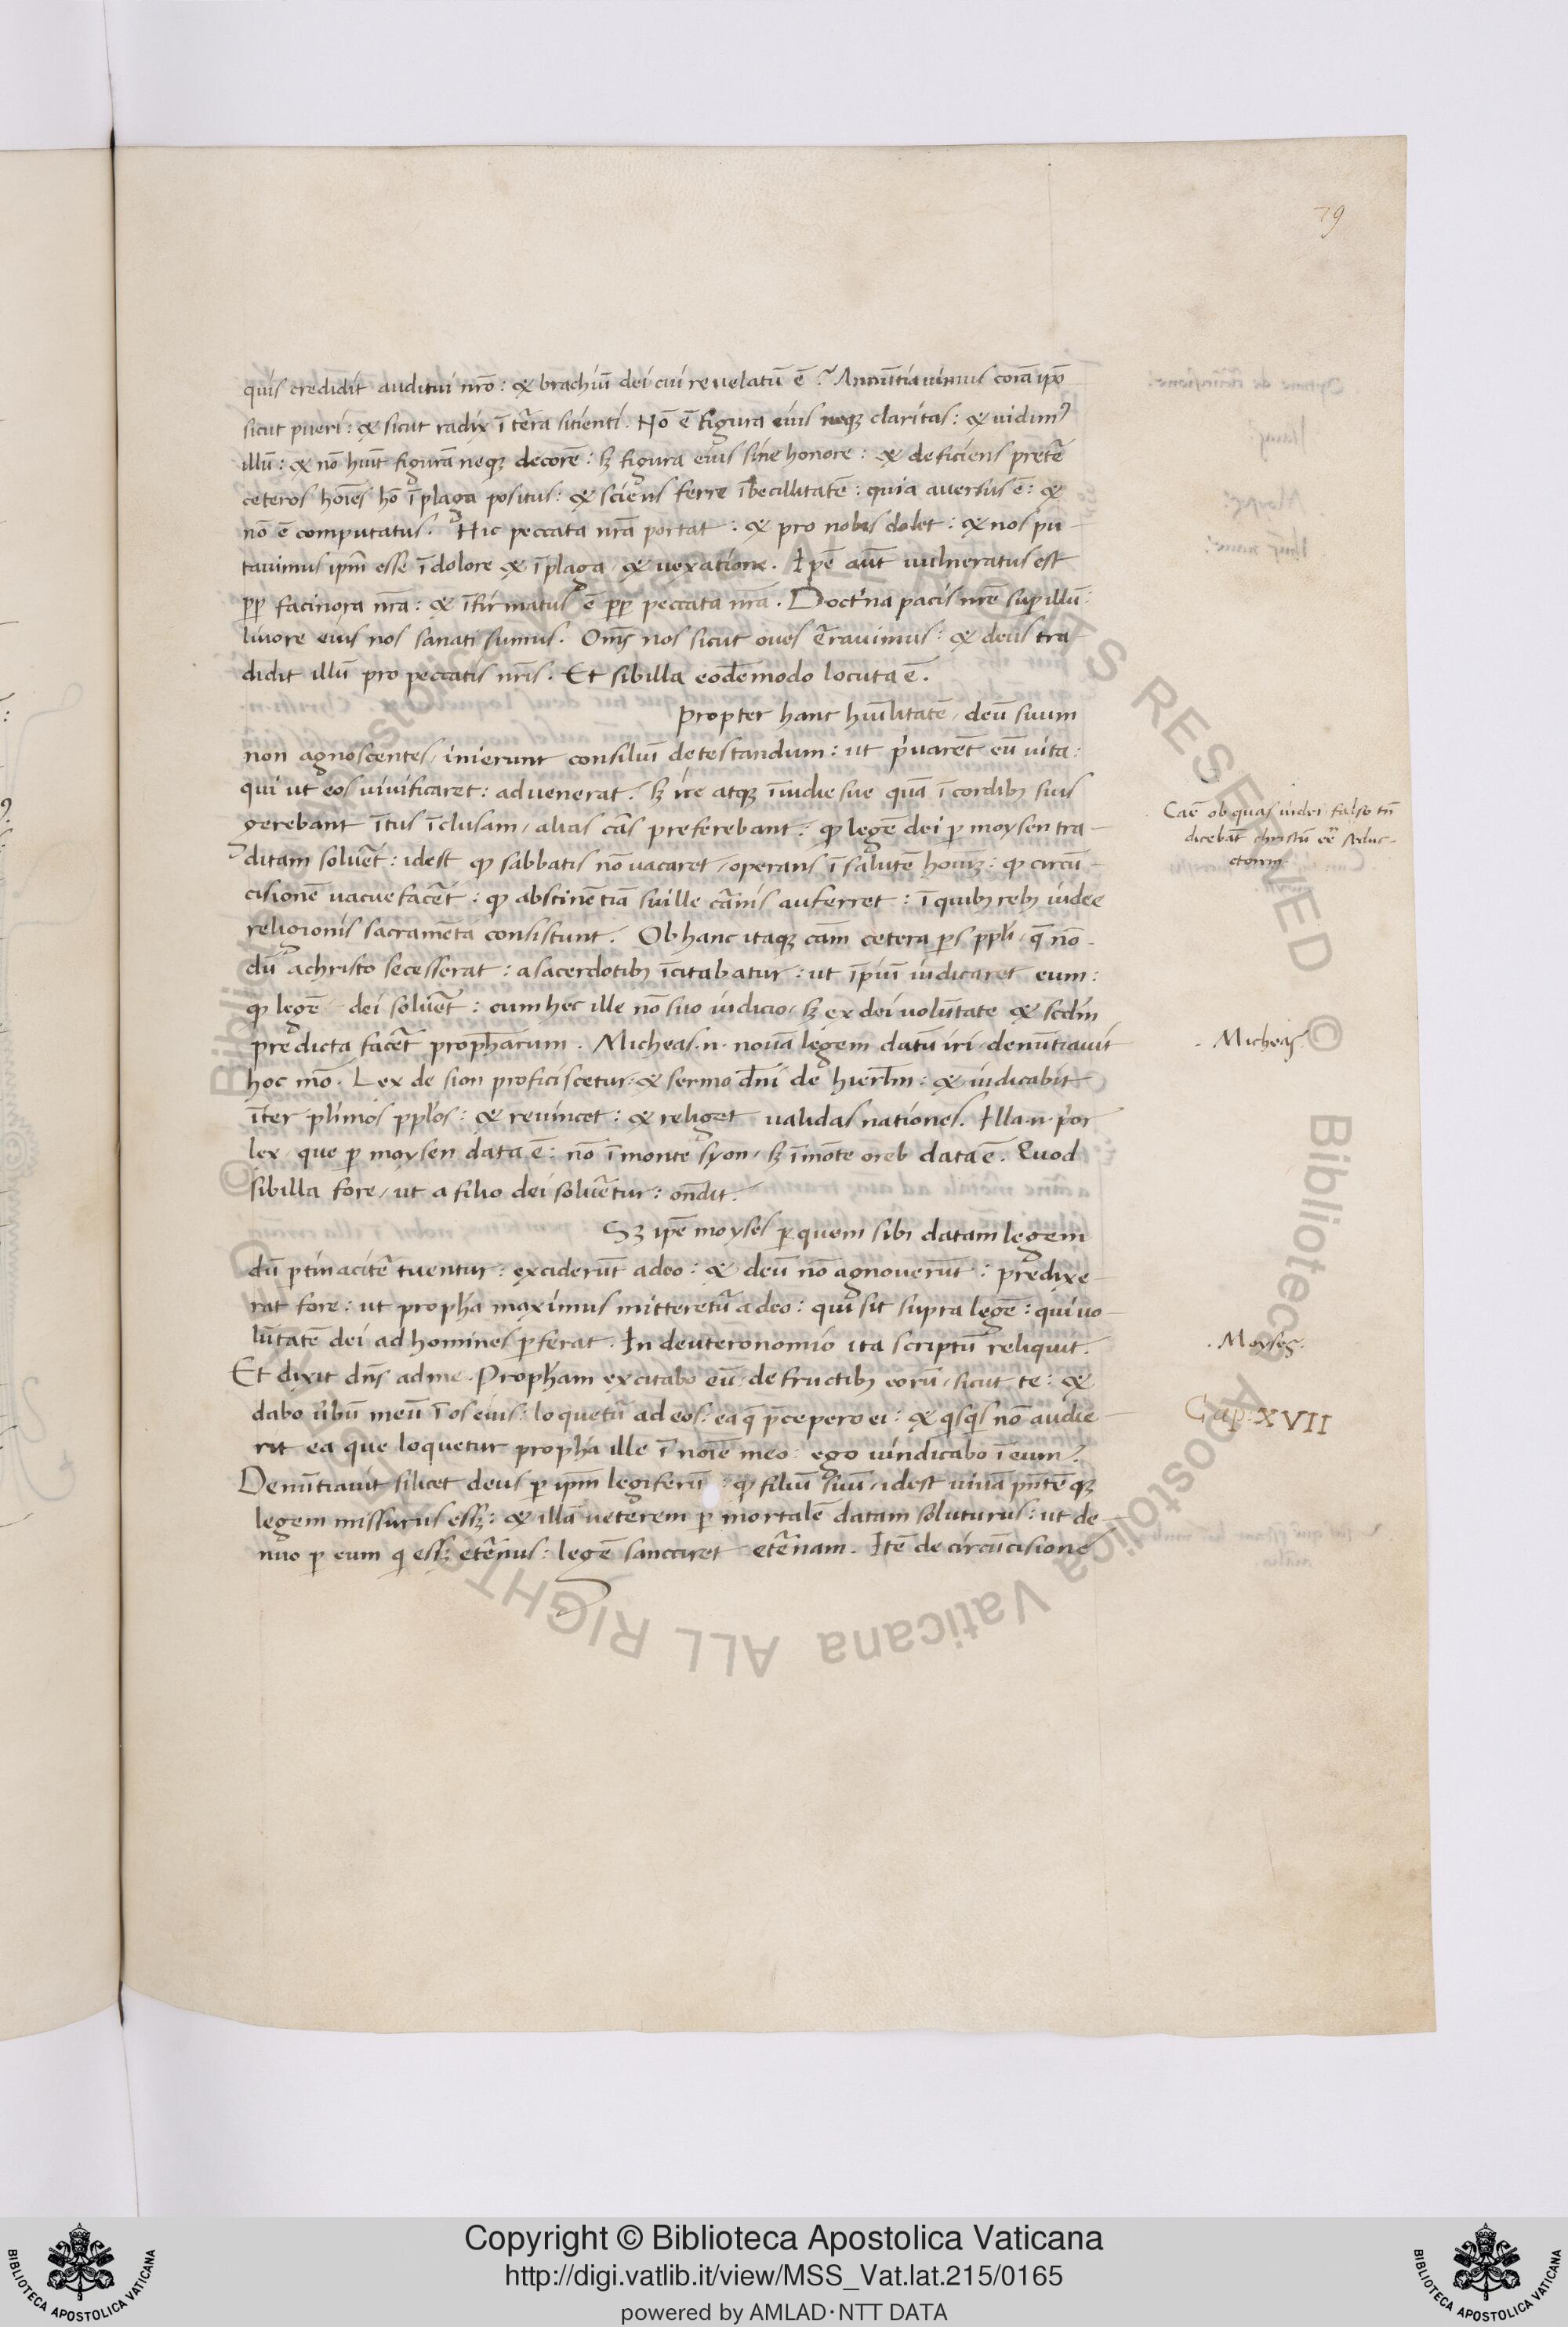 79
quis credidit auditui nr̄o: & brachiū dei cui revelatū ē? Annūtiavimus corā ip̄o
sicut pueri: & sicut radix ī t̄ra sitienti. Nō ē figura eius neqꝫ claritas: & vidimꝰ
illū: & nō huit figurā neqꝫ decorē: sꝫ figura eius sine honore: & deficiens pretē
ceteros hoīes hō ī plaga positus: & sciens ferre ībecillitatē: quia aversus ē: &
nō ē computatus. Hic peccata nr̄a portat: & pro nobis dolet: & nos pu-
tavimus ipm̄ esse ī dolore & ī plaga & vexatione. Ipē aūt vulneratus est
pp̄ facinora nr̄a: & īfirmatus ē pp̄ peccata nr̄a. Doct'na pacis nr̄e sup illū:
livore eius nos sanati sumus. Om̄s nos sicut oves ēravimus: & deus tra-
didit illū pro peccatis nr̄is. Et sibilla eodē modo locuta ē.
Propter hanc hūilitatē, deū suum
non agnoscentes, inierunt consiluī detestandum: ut p'varēt eū vita:
qui ut eos vivificaret: advenerat. Sꝫ ire atqꝫ īvidie sue quā ī cordibꝫ suis
gerebant ītus īclusam, alias cās preferebant: ꝙ legē dei ꝑ moysen tra-
ditam solvēt: idest ꝙ sabbatis nō vacaret, operans ī salutē hoīuꝫ: ꝙ circū-
cisionē vacuefac̄et: ꝙ abstinētiā suille cārnis auferret: ī quibꝫ rebꝫ iudee
religionis sacramēta consistunt. Ob hanc itaqꝫ cām cetera ꝑs ppl̄i, q̄ nō-
dū a christo secesserat: a sacerdotibꝫ īcitabatur: ut īpiuī iudicaret eum:
ꝙ legē dei solvēt: cum hec ille nō suo iudicio, sꝫ ex dei volūtate & scdm̄
predicta fac̄et prophārum. Micheas .n. novā legem datū iri denūtiavit
hoc mō. Lex de sion proficiscetur: & sermo dn̄i de hierl̄m: & iudicabit
īter pl̄imos pplōs: & revincet: & religet validas nationes. Illa .n. p'or
lex, que ꝑ moysen data ē: nō ī monte syon, sꝫ ī mōte oreb data ē. Quod
sibilla fore, ut a filio dei solvētur: on̄dit.
Sꝫ ipē moyses ꝑ quem sibi datam legem
dū ꝑtinacitē tuentur: exciderūt a deo: & deū nō agnoverūt: predixe-
rat fore: ut prophā maximus mitteretū a deo: qui sit supra legē: qui vo-
lūtatē dei ad homines ꝑferat. In deuteronomio ita scriptū reliquit.
Et dixit dn̄s ad me. Prophām excitabo eū, de fructibꝫ eorū, sicut te: &
dabo v̄bū meū ī os eius: loquetū ad eos: ea q̄ p̄cepero ei: & qsqs nō audie-
rit ea que loquetur prophā ille ī noīe meo: ego vindicabo ī eum.
Denūtiavit silicet deus ꝑ ipm̄ legiferū : ꝙ filiū suū, idest vivā pn̄tē qꝫ
legem missurus essꝫ: & illā veterem ꝑ mortalē datam soluturus: ut de-
nuo ꝑ eum q essꝫ et̄ernus: legē sanciret et̄ernam. Itē de circūcisione
Caē ob quas iudei falso tn̄
dicebāt christū eē seduc-
ctorem.
Micheas.
Moyses.
Cap. XVII
Copyright © Biblioteca Apostolica Vaticana
http://digi.vatlib.it/view/MSS_Vat.lat.215/0165
powered by AMLAD·NTT DATA
BIBLIOTECA APOSTOLICA VATICANA
BIBLIOTECA APOSTOLICA VATICANA
© Biblioteca Apostolica Vaticana ALL RIGHTS RESERVED
© Biblioteca Apostolica Vaticana ALL RIGHTS RESERVED